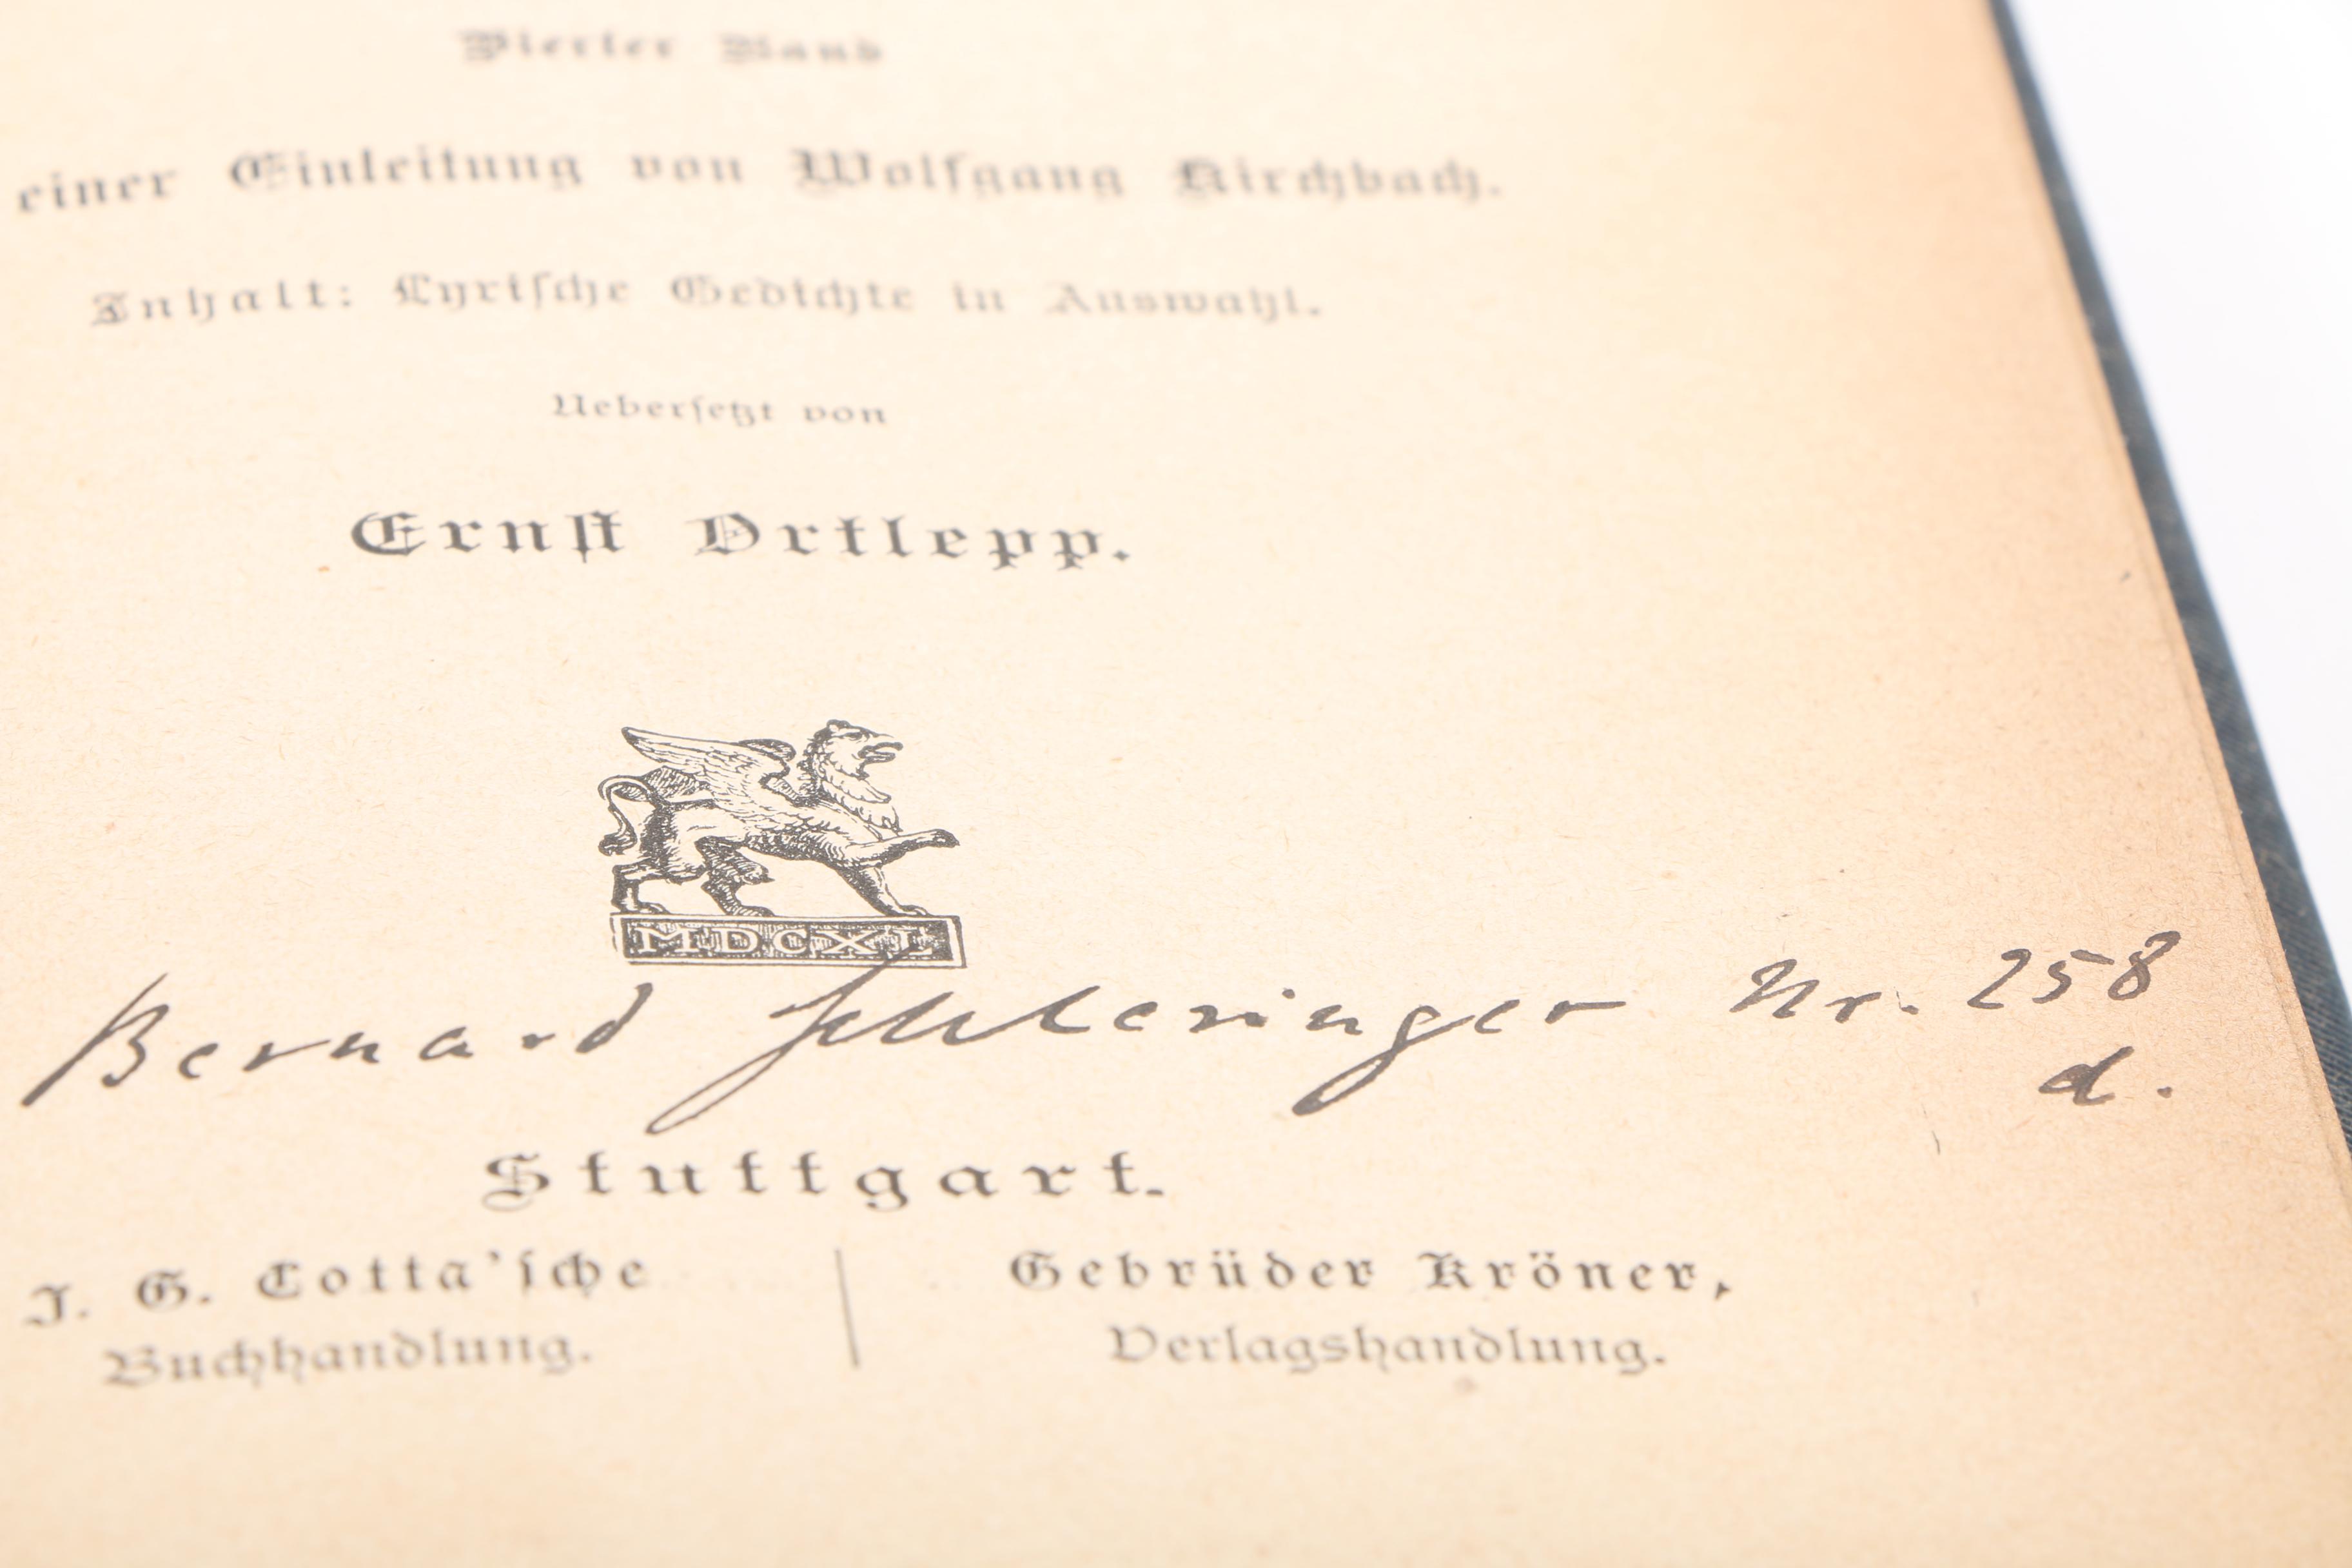 Vierter Band
einer Einleitung von Wolfgang Kirchbach.
Inhalt: Lyriſche Gedichte in Auswahl.
Ueberſetzt von
Ernſt Ortlepp.
MDCXL
Bernard Schlesinger Nr. 258
d.
Stuttgart.
J. G. Cotta'ſche
Buchhandlung.
Gebrüder Kröner,
Verlagshandlung.